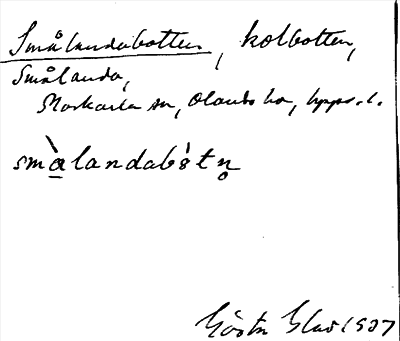 Smålandabotten, kolbotten,
Smålanda,
Markarla sn, Olands hd, Upps. l.
smàlandabòtn̥
Gösta 1907